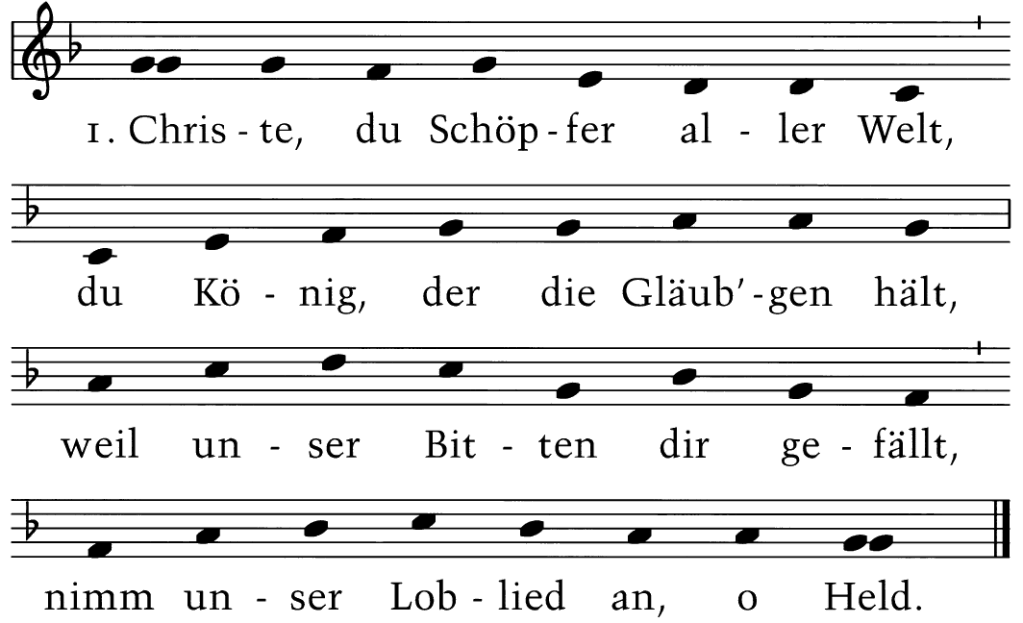 1. Chris - te, du Schöp - fer al - ler Welt,
du Kö - nig, der die Gläub’ - gen hält,
weil un - ser Bit - ten dir ge - fällt,
nimm un - ser Lob - lied an, o Held.